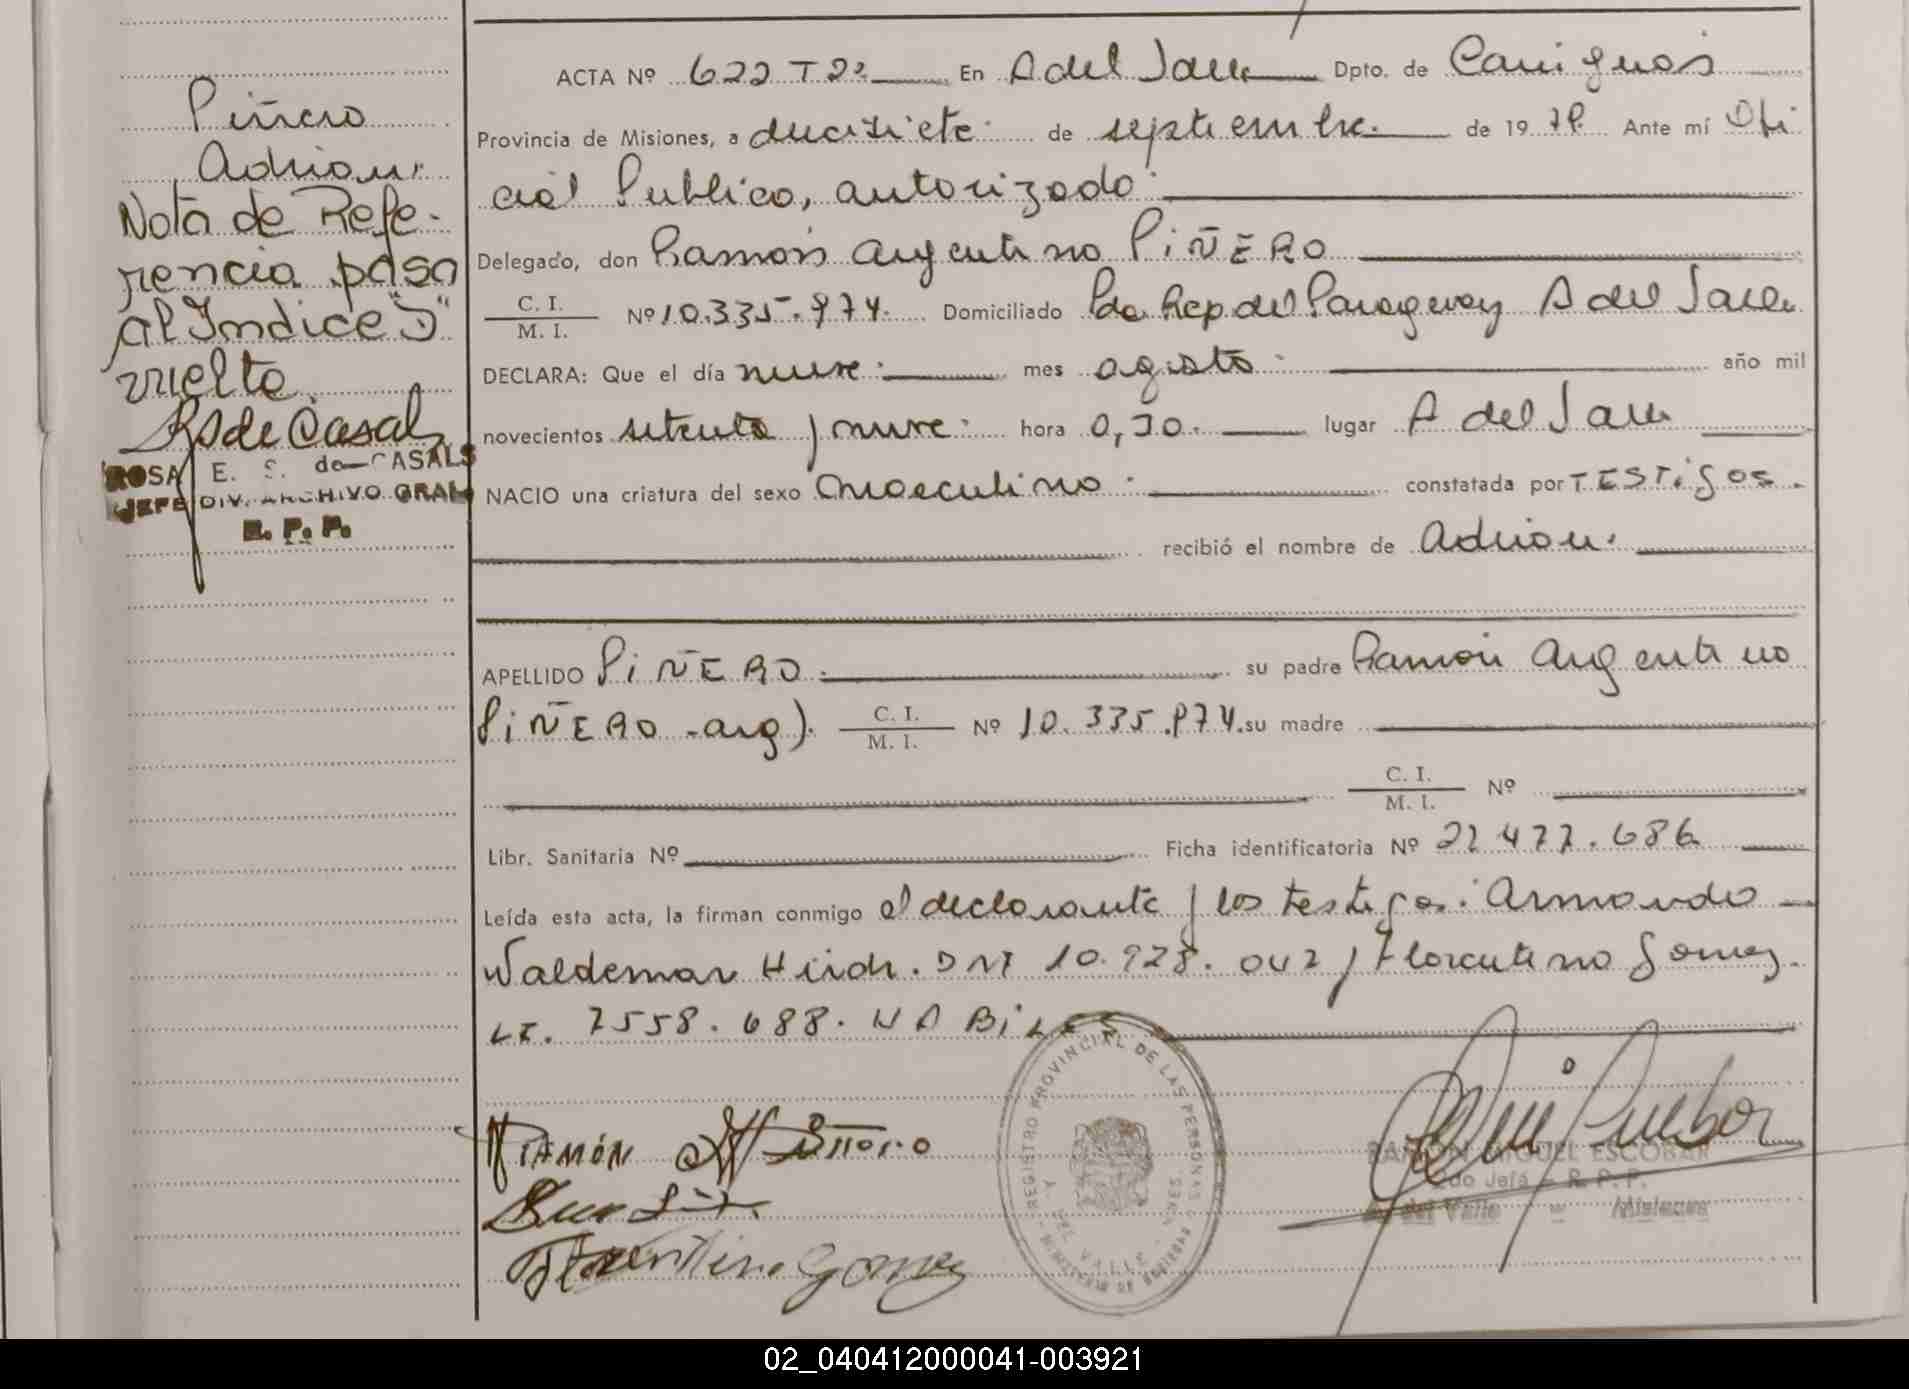 Piñero
Adrian.
Nota de Refe-
rencia pasa
al Indice "D"
vuelta.
RS de Casals
ROSA E. S. de CASALS
JEFE DIV. ARCHIVO GRAL
R. P. P.
ACTA Nº 622 T 2º En A del Valle Dpto. de Cainguás
Provincia de Misiones, a diecisiete de septiembre. de 19 79. Ante mí Ofi
cial Publico, autorizado
Delegado, don Ramón Argentino PiÑERO
C. I.
M. I. Nº 10.335.974. Domiciliado Pdo Rep. del Paraguay A del Valle
DECLARA: Que el día nueve mes agosto año mil
novecientos setenta y nueve hora 0,30. lugar A del Valle
NACIO una criatura del sexo masculino constatada por TESTigos.
recibió el nombre de Adrian.
APELLIDO PiÑERO. su padre Ramón Argentino
PiÑERO -arg). C. I.
M. I. Nº 10.335.974. su madre
C. I.
M. I. Nº
Libr. Sanitaria Nº Ficha identificatoria Nº 27.477.686
Leída esta acta, la firman conmigo el declarante y los testigos: Armando
Waldemar Hirch. DNI 10.928.042 y Florentino Gomez.
LE. 7558.688. HABILES
RAMÓN Piñero
Florentino Gomez
REGISTRO PROVINCIAL DE LAS PERSONAS
A. DEL VALLE - MNES.
MINISTERIO DE GOBIERNO
RAMON MIGUEL ESCOBAR
2do Jefe - R. P. P.
A. del Valle - Misiones
02_040412000041-003921